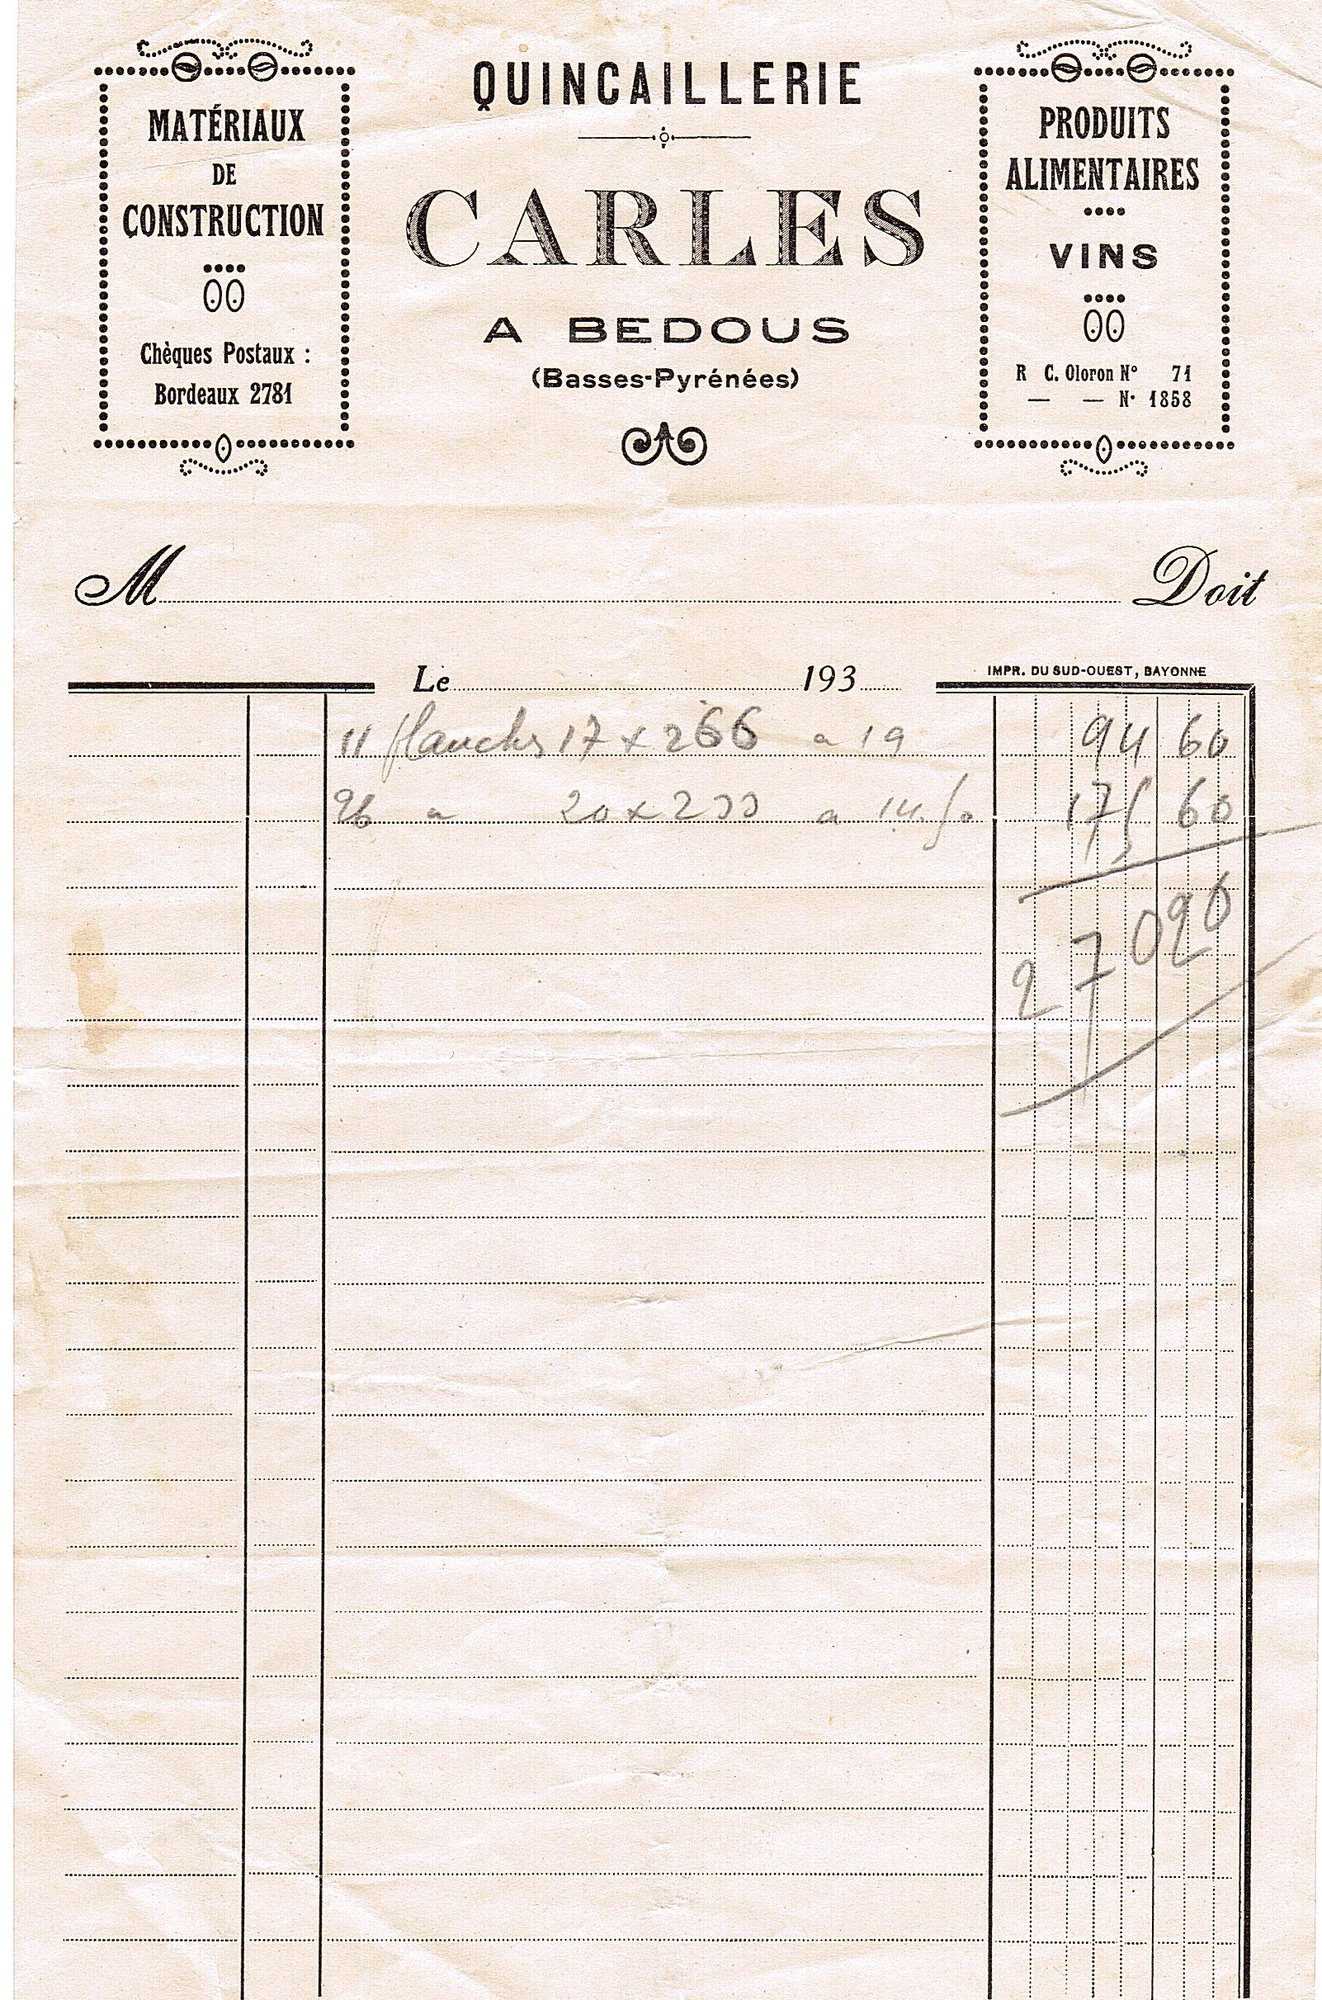 MATÉRIAUX
DE
CONSTRUCTION
Chèques Postaux :
Bordeaux 2781
QUINCAILLERIE
CARLES
A BEDOUS
(Basses-Pyrénées)
PRODUITS
ALIMENTAIRES
VINS
R C. Oloron N° 71
— — N° 1858
M Doit
Le 193
IMPR. DU SUD-OUEST, BAYONNE
11 planches 17 x 266 a 19 94 60
26 a 20 x 233 a 14.50 175 60
270 20